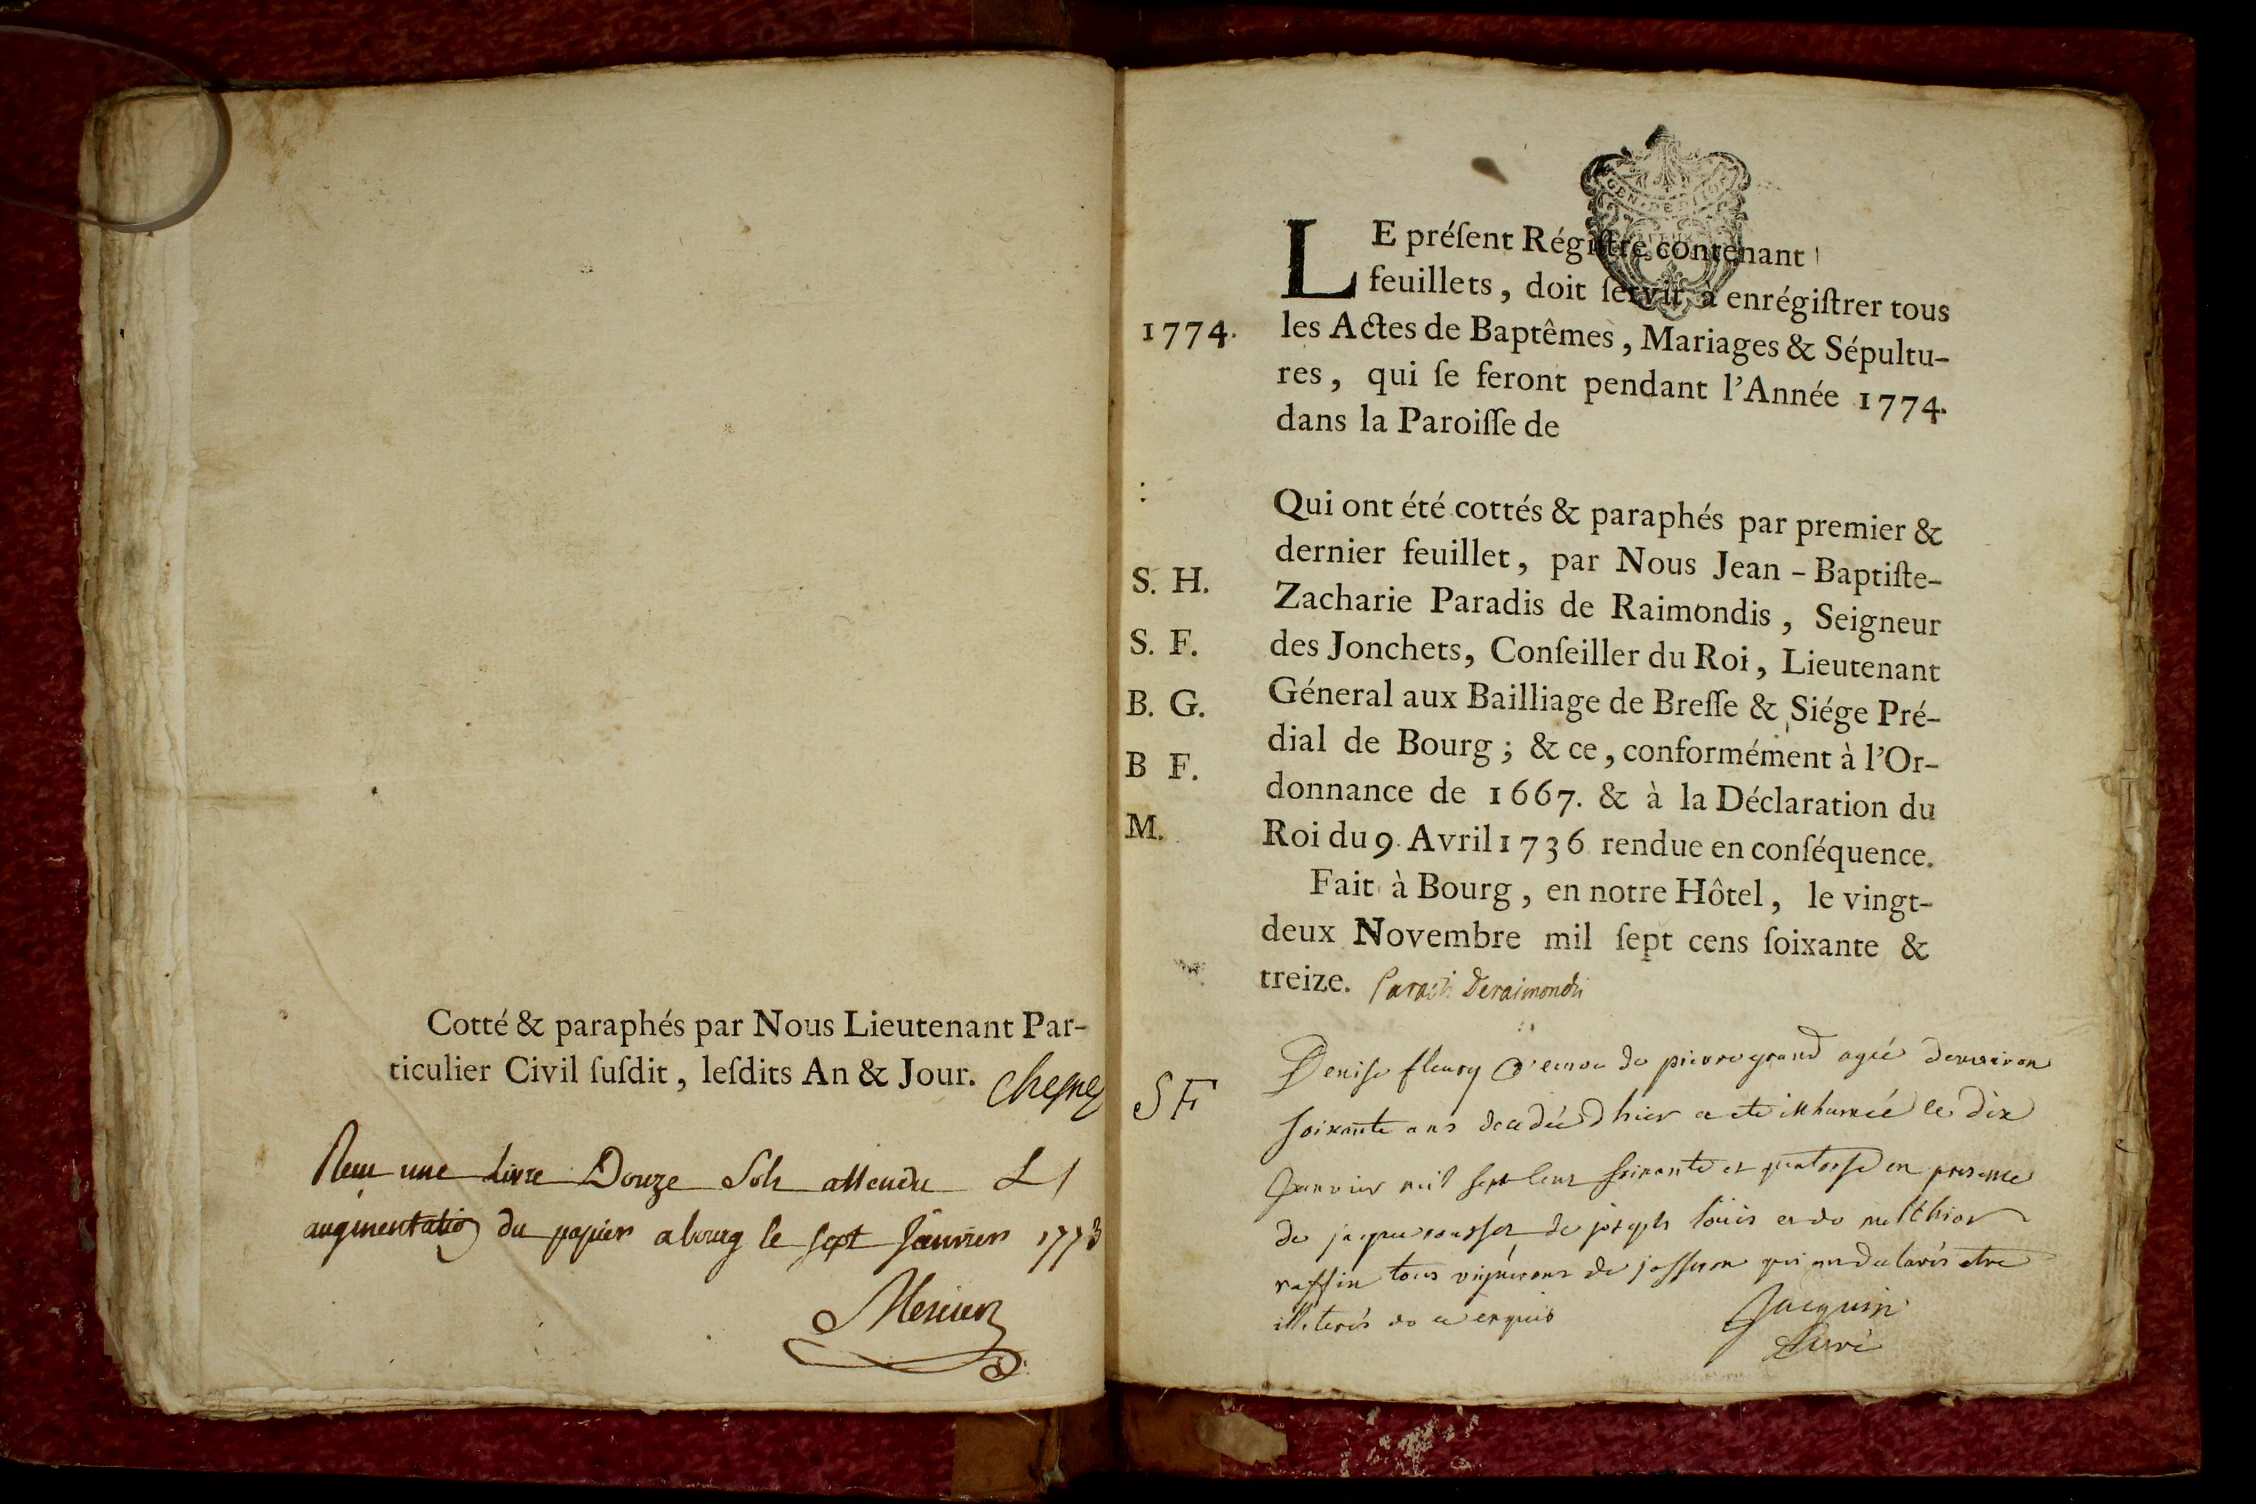 Cotté & paraphés par Nous Lieutenant Par-
ticulier Civil ſuſdit, leſdits An & Jour. Chesney
Reçu une Livre Douze Sols attendu L
augmentation du papier a bourg le sept Janvier 1773
Mercier
LE préſent Régiſtre contenant
feuillets, doit ſervir à enrégiſtrer tous
1774. les Actes de Baptêmes, Mariages & Sépultu-
res, qui ſe feront pendant l'Année 1774.
dans la Paroiſſe de
Qui ont été cottés & paraphés par premier &
dernier feuillet, par Nous Jean-Baptiſte-
S. H. Zacharie Paradis de Raimondis, Seigneur
S. F. des Jonchets, Conſeiller du Roi, Lieutenant
B. G. Géneral aux Bailliage de Breſſe & Siége Pré-
B F. dial de Bourg; & ce, conformément à l'Or-
donnance de 1667. & à la Déclaration du
M. Roi du 9. Avril 1736 rendue en conſéquence.
Fait à Bourg, en notre Hôtel, le vingt-
deux Novembre mil ſept cens ſoixante &
treize. Paradis Deraimondis
SF Denise fleury veuve de pierre grand agée denviron
soixante ans decedée d'hier a eté inhumée le dix
Janvier mil sept cens soixante et quatorse en presence
de jaque rousset de joseph louis et de melchior
raffin tous vignerons de jasseron qui ont declarés etre
illiterés de ce enquis Jacquin
Curé